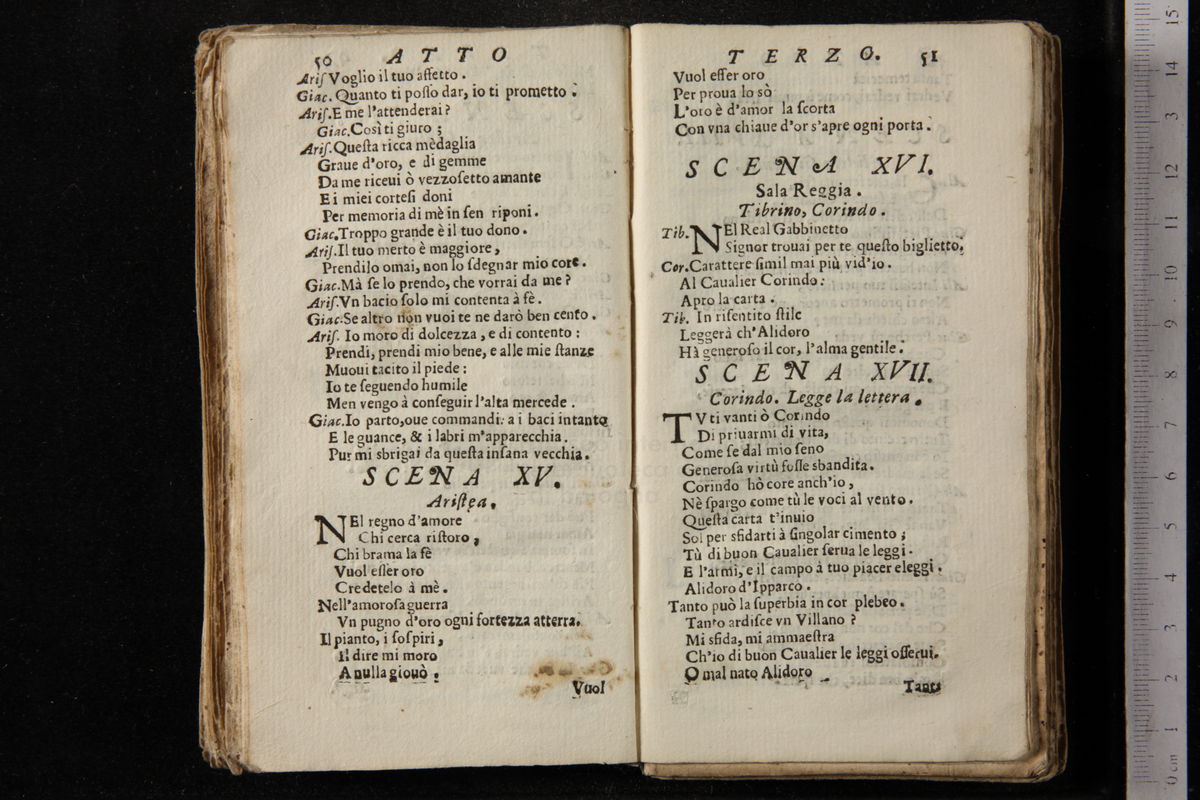 50 ATTO
Ariſ Voglio il tuo affetto.
Giac. Quanto ti poſſo dar, io ti prometto.
Ariſ. E me l'attenderai?
Giac. Così ti giuro;
Ariſ. Queſta ricca mèdaglia
Graue d'oro, e di gemme
Da me riceui ò vezzoſetto amante
E i miei corteſi doni
Per memoria di mè in ſen riponi.
Giac. Troppo grande è il tuo dono.
Ariſ. Il tuo merto è maggiore,
Prendilo omai, non lo ſdegnar mio core.
Giac. Mà ſe lo prendo, che vorrai da me?
Ariſ. Vn bacio ſolo mi contenta à fè.
Giac. Se altro non vuoi te ne darò ben cento.
Ariſ. Io moro di dolcezza, e di contento:
Prendi, prendi mio bene, e alle mie ſtanze
Muoui tacito il piede:
Io te ſeguendo humile
Men vengo à conſeguir l'alta mercede.
Giac. Io parto, oue commandi: a i baci intanto
E le guance, & i labri m'apparecchia.
Pur mi sbrigai da queſta inſana vecchia.
SCENA XV.
Ariſtea.
NEl regno d'amore
Chi cerca riſtoro,
Chi brama la fè
Vuol eſſer oro
Credetelo à mè.
Nell'amoroſa guerra
Vn pugno d'oro ogni fortezza atterra.
Il pianto, i ſoſpiri,
Il dire mi moro
A nulla giouò.
Vuol
TERZO. 51
Vuol eſſer oro
Per proua lo sò
L'oro è d'amor la ſcorta
Con vna chiaue d'or s'apre ogni porta.
SCENA XVI.
Sala Reggia.
Tibrino, Corindo.
Tib. NEl Real Gabbinetto
Signor trouai per te queſto biglietto.
Cor. Carattere ſimil mai più vid'io.
Al Caualier Corindo:
Apro la carta.
Tib. In riſentito ſtile
Leggerà ch'Alidoro
Hà generoſo il cor, l'alma gentile.
SCENA XVII.
Corindo. Legge la lettera.
TV ti vanti ò Corindo
Di priuarmi di vita,
Come ſe dal mio ſeno
Generoſa virtù foſſe sbandita.
Corindo hò core anch'io,
Nè ſpargo come tù le voci al vento.
Queſta carta t'inuio
Sol per sfidarti à ſingolar cimento;
Tù di buon Caualier ſerua le leggi.
E l'armi, e il campo à tuo piacer eleggi.
Alidoro d'Ipparco.
Tanto può la ſuperbia in cor plebeo.
Tanto ardiſce vn Villano?
Mi sfida, mi ammaeſtra
Ch'io di buon Caualier le leggi oſſerui.
O mal nato Alidoro
Tanto